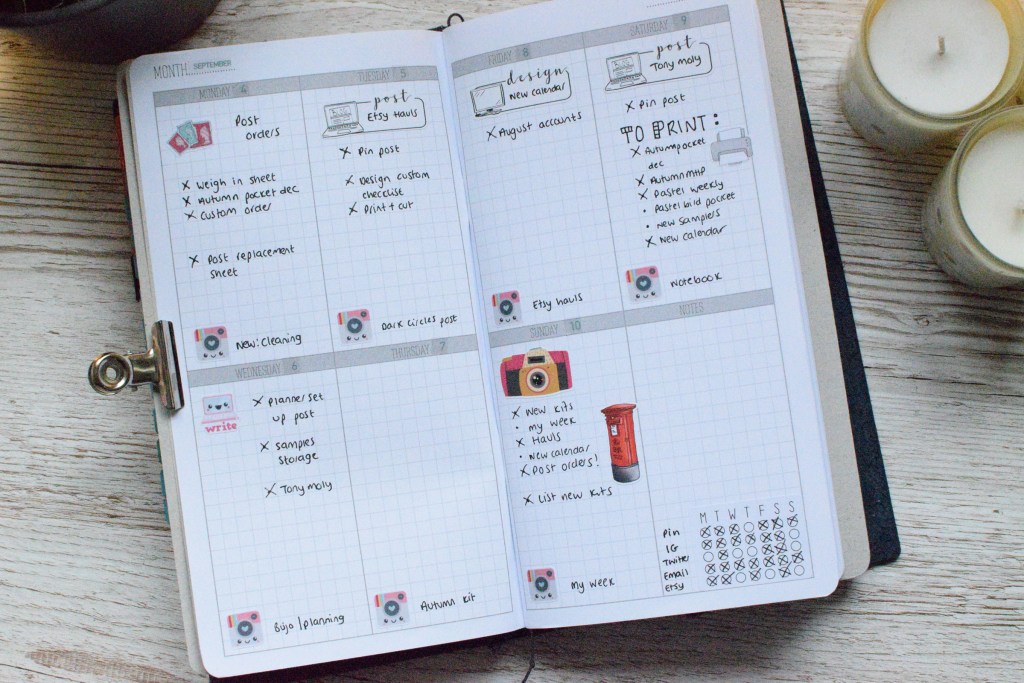 MONTH SEPTEMBER
MONDAY 4
Post
orders
x Weigh in sheet
x Autumn pocket dec
x Custom order
x Post replacement
sheet
New: Cleaning
TUESDAY 5
post
Etsy Hauls
x Pin post
x Design custom
checklist
x Print + cut
Dark circles post
WEDNESDAY 6
write
x planner set
up post
x samples
storage
x Tony moly
Bujo/planning
THURSDAY 7
Autumn kit
FRIDAY 8
design
New calendar
x August accounts
Etsy hauls
SATURDAY 9
post
Tony moly
x Pin post
TO PRINT:
x Autumn pocket
dec
x Autumn MHP
x Pastel weekly
• Pastel build pocket
• New samplers
x New calendar
Notebook
SUNDAY 10
x New kits
• my week
x Hauls
• New calendar
x Post orders!
x List new kits
my week
NOTES
M T W T F S S
Pin
IG
Twitter
Email
Etsy